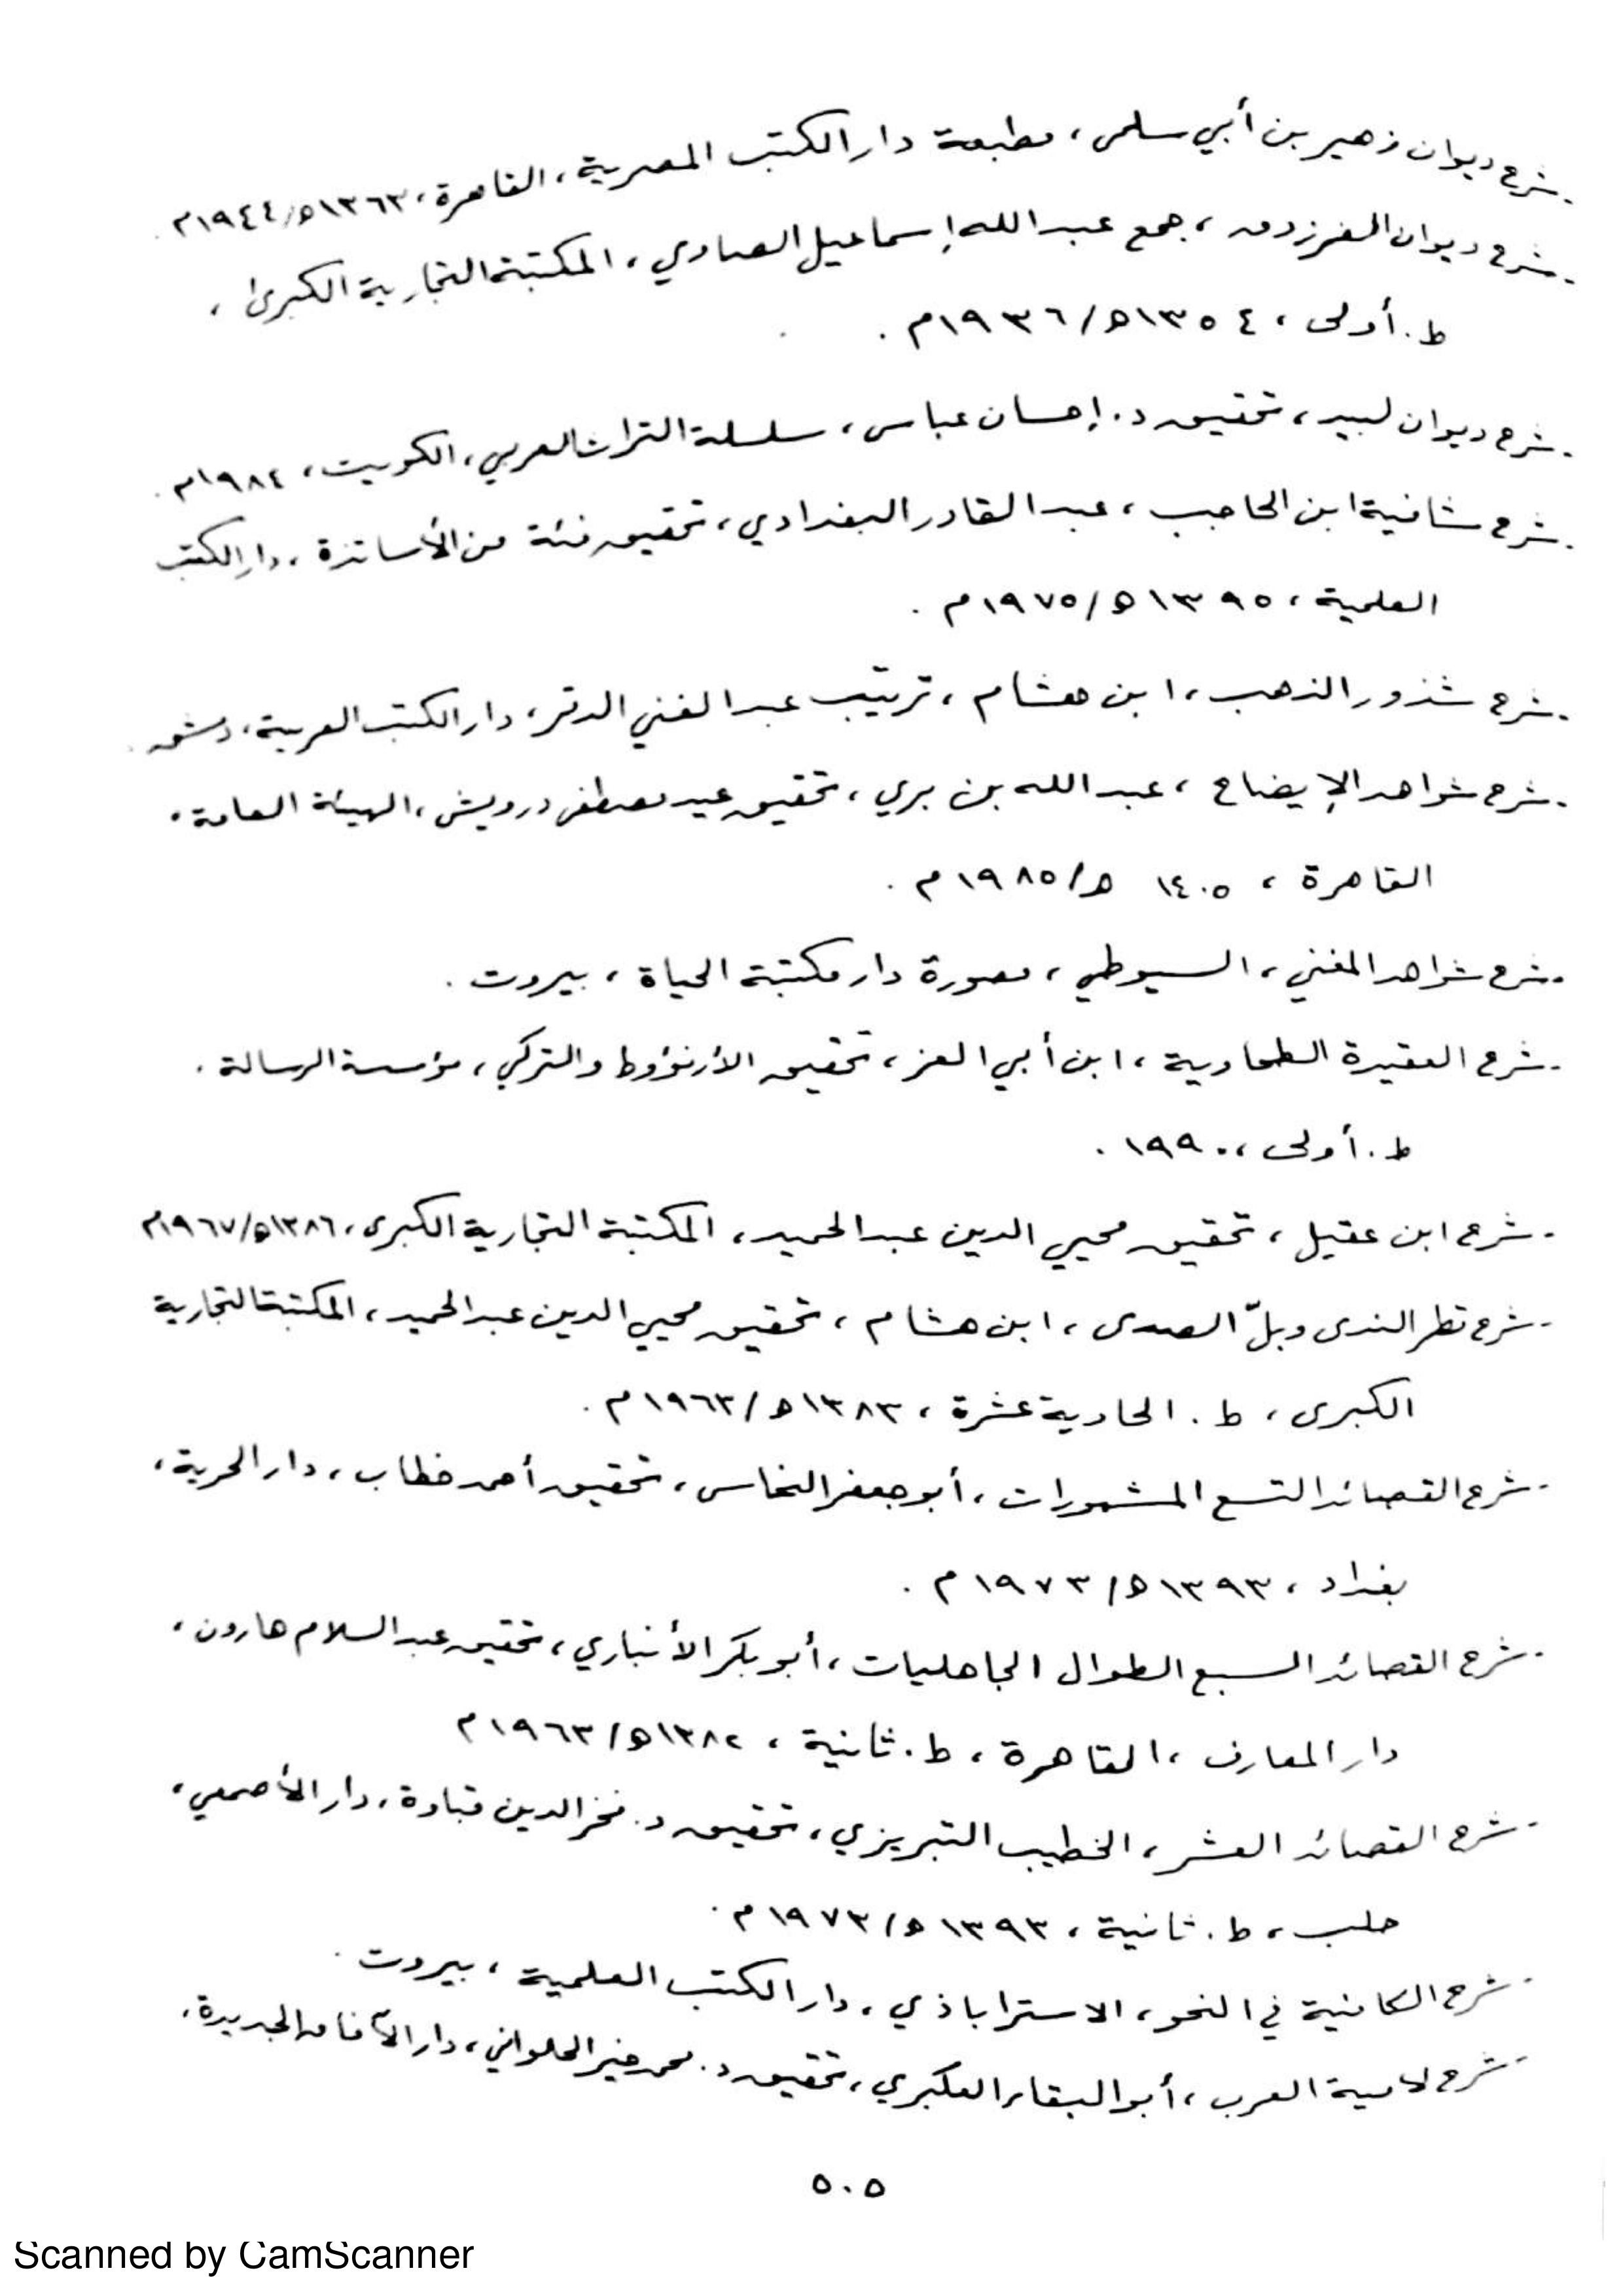 - شرح ديوان زهير بن أبي سلمى ، مطبعة دار الكتب المصرية ، القاهرة ، ١٣٦٣ھ/١٩٤٤م .
- شرح ديوان الفرزدق ، جمع عبد الله إسماعيل الصاوي ، المكتبة التجارية الكبرى ،
ط. أولى ، ١٣٥٤ھ/١٩٣٦م .
- شرح ديوان لبيد ، تحقيق د. إحسان عباس ، سلسلة التراث العربي ، الكويت ، ١٩٨٤م .
- شرح شافية ابن الحاجب ، عبد القادر البغدادي ، تحقيق فئة من الأساتذة ، دار الكتب
العلمية ، ١٣٩٥ھ/١٩٧٥م .
- شرح شذور الذهب ، ابن هشام ، ترتيب عبد الغني الدقر ، دار الكتب العربية ، دمشق .
- شرح شواهد الإيضاح ، عبد الله بن بري ، تحقيق عيد مصطفى درويش ، الهيئة العامة ،
القاهرة ، ١٤٠٥ ھ/١٩٨٥م .
- شرح شواهد المغني ، السيوطي ، مصورة دار مكتبة الحياة ، بيروت .
- شرح العقيدة الطحاوية ، ابن أبي العز ، تحقيق الأرنؤوط والتركي ، مؤسسة الرسالة .
ط. أولى ، ١٩٩٠ .
- شرح ابن عقيل ، تحقيق محيي الدين عبد الحميد ، المكتبة التجارية الكبرى ، ١٣٨٦ھ/١٩٦٧م
- شرح قطر الندى وبلّ الصدى ، ابن هشام ، تحقيق محيي الدين عبد الحميد ، المكتبة التجارية
الكبرى ، ط . الحادية عشرة ، ١٣٨٣ھ/١٩٦٣م .
- شرح القصائد التسع المشهورات ، أبو جعفر النحاس ، تحقيق أحمد خطاب ، دار الحرية ،
بغداد ، ١٣٩٣ھ/١٩٧٣م .
- شرح القصائد السبع الطوال الجاهليات ، أبو بكر الأنباري ، تحقيق عبد السلام هارون ،
دار المعارف ، القاهرة ، ط . ثانية ، ١٣٨٢ھ/١٩٦٣م
- شرح القصائد العشر ، الخطيب التبريزي ، تحقيق د. فخر الدين قباوة ، دار الأصمعي ،
حلب ، ط . ثانية ، ١٣٩٣ھ/١٩٧٣م .
- شرح الكافية في النحو ، الاستراباذي ، دار الكتب العلمية ، بيروت .
- شرح لامية العرب ، أبو البقاء العكبري ، تحقيق د. محمد خير الحلواني ، دار الآفاق الجديدة ،
٥٠٥
Scanned by CamScanner